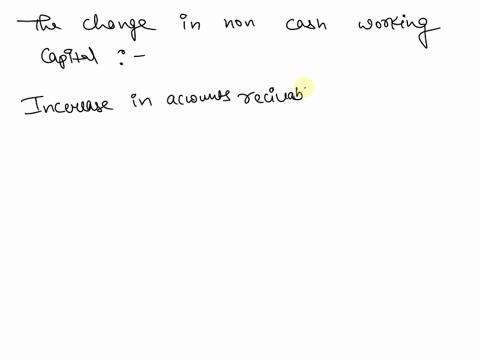 The change in non cash working
Capital :-
Increase in accounts recivab